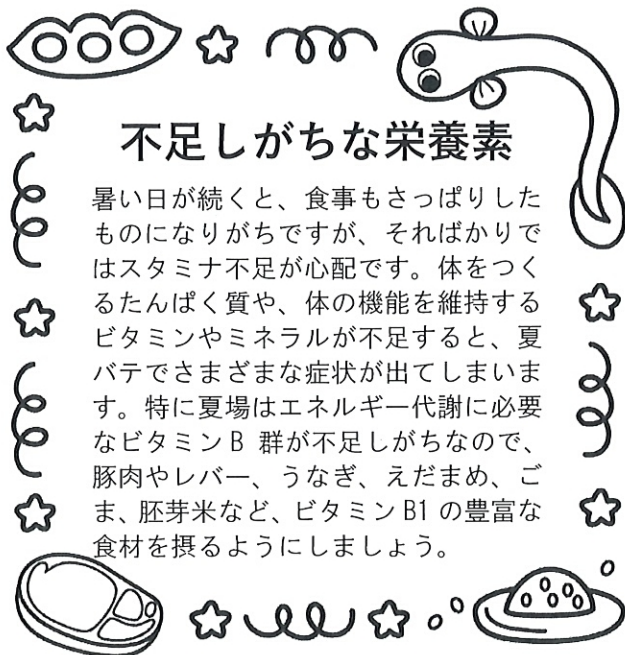 不足しがちな栄養素
暑い日が続くと、食事もさっぱりした
ものになりがちですが、そればかりで
はスタミナ不足が心配です。体をつく
るたんぱく質や、体の機能を維持する
ビタミンやミネラルが不足すると、夏
バテでさまざまな症状が出てしまいま
す。特に夏場はエネルギー代謝に必要
なビタミンB 群が不足しがちなので、
豚肉やレバー、うなぎ、えだまめ、ご
ま、胚芽米など、ビタミンB1 の豊富な
食材を摂るようにしましょう。